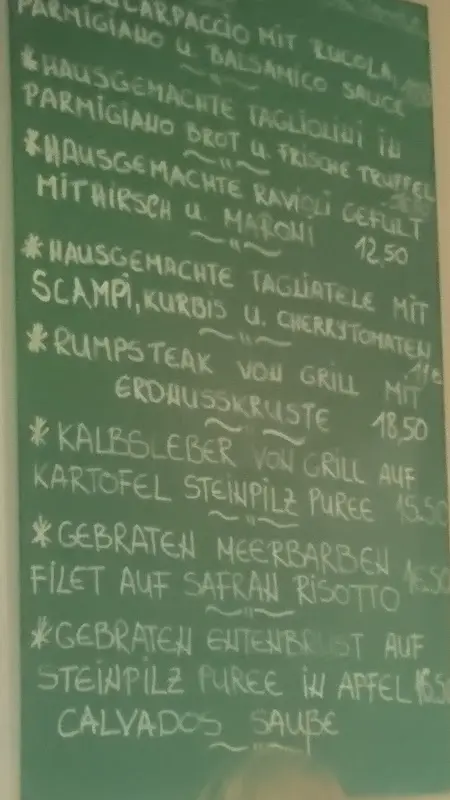 CARPACCIO MIT RUCOLA,
PARMIGIANO U. BALSAMICO SAUCE
*HAUSGEMACHTE TAGLIOLINI IN
PARMIGIANO BROT U. FRISCHE TRUFFEL
*HAUSGEMACHTE RAVIOLI GEFULT
MIT HIRSCH U. MARONI 12,50
*HAUSGEMACHTE TAGLIATELE MIT
SCAMPI, KURBIS U. CHERRYTOMATEN
*RUMPSTEAK VON GRILL MIT
ERDNUSSKRUSTE 18,50
*KALBSLEBER VON GRILL AUF
KARTOFEL STEINPILZ PUREE 15,50
*GEBRATEN MEERBARBEN
FILET AUF SAFRAN RISOTTO
*GEBRATEN ENTENBRUST AUF
STEINPILZ PUREE IN APFEL
CALVADOS SAUßE